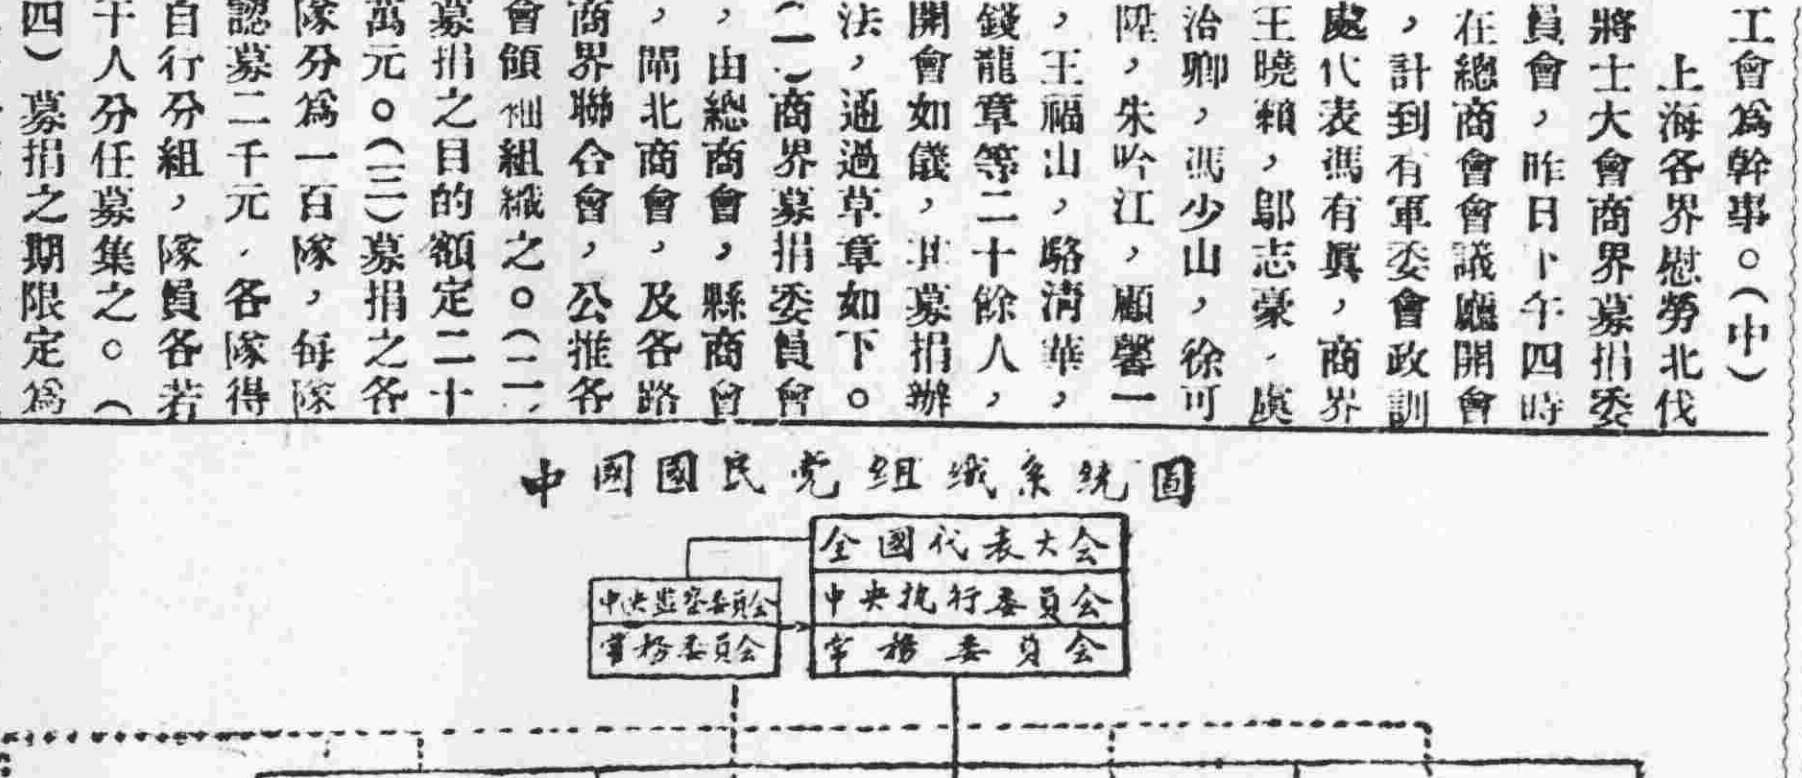 工會爲幹事。(中)
上海各界慰勞北伐
將士大會商界募捐委
員會,昨日下午四時
在總商會會議廳開會
,計到有軍委會政訓
處代表馮有眞,商界
王曉籟,鄔志豪,虞
治卿,馮少山,徐可
陞,朱吟江,顧馨一
,王福山,駱清華,
錢龍章等二十餘人,
開會如儀,其募捐辦
法,通過草章如下。
(一)商界募捐委員會
,由總商會,縣商會
,閘北商會,及各路
商界聯合會,公推各
會領袖組織之。(二)
募捐之目的額定二十
萬元。(三)募捐之各
隊分爲一百隊,每隊
認募二千元,各隊得
自行分組,隊員各若
干人分任募集之。(
四)募捐之期限定爲
中國國民党组織系統圖
全國代表大会
中央执行委員会
常務委員会
中央监察委員会
常務委員会